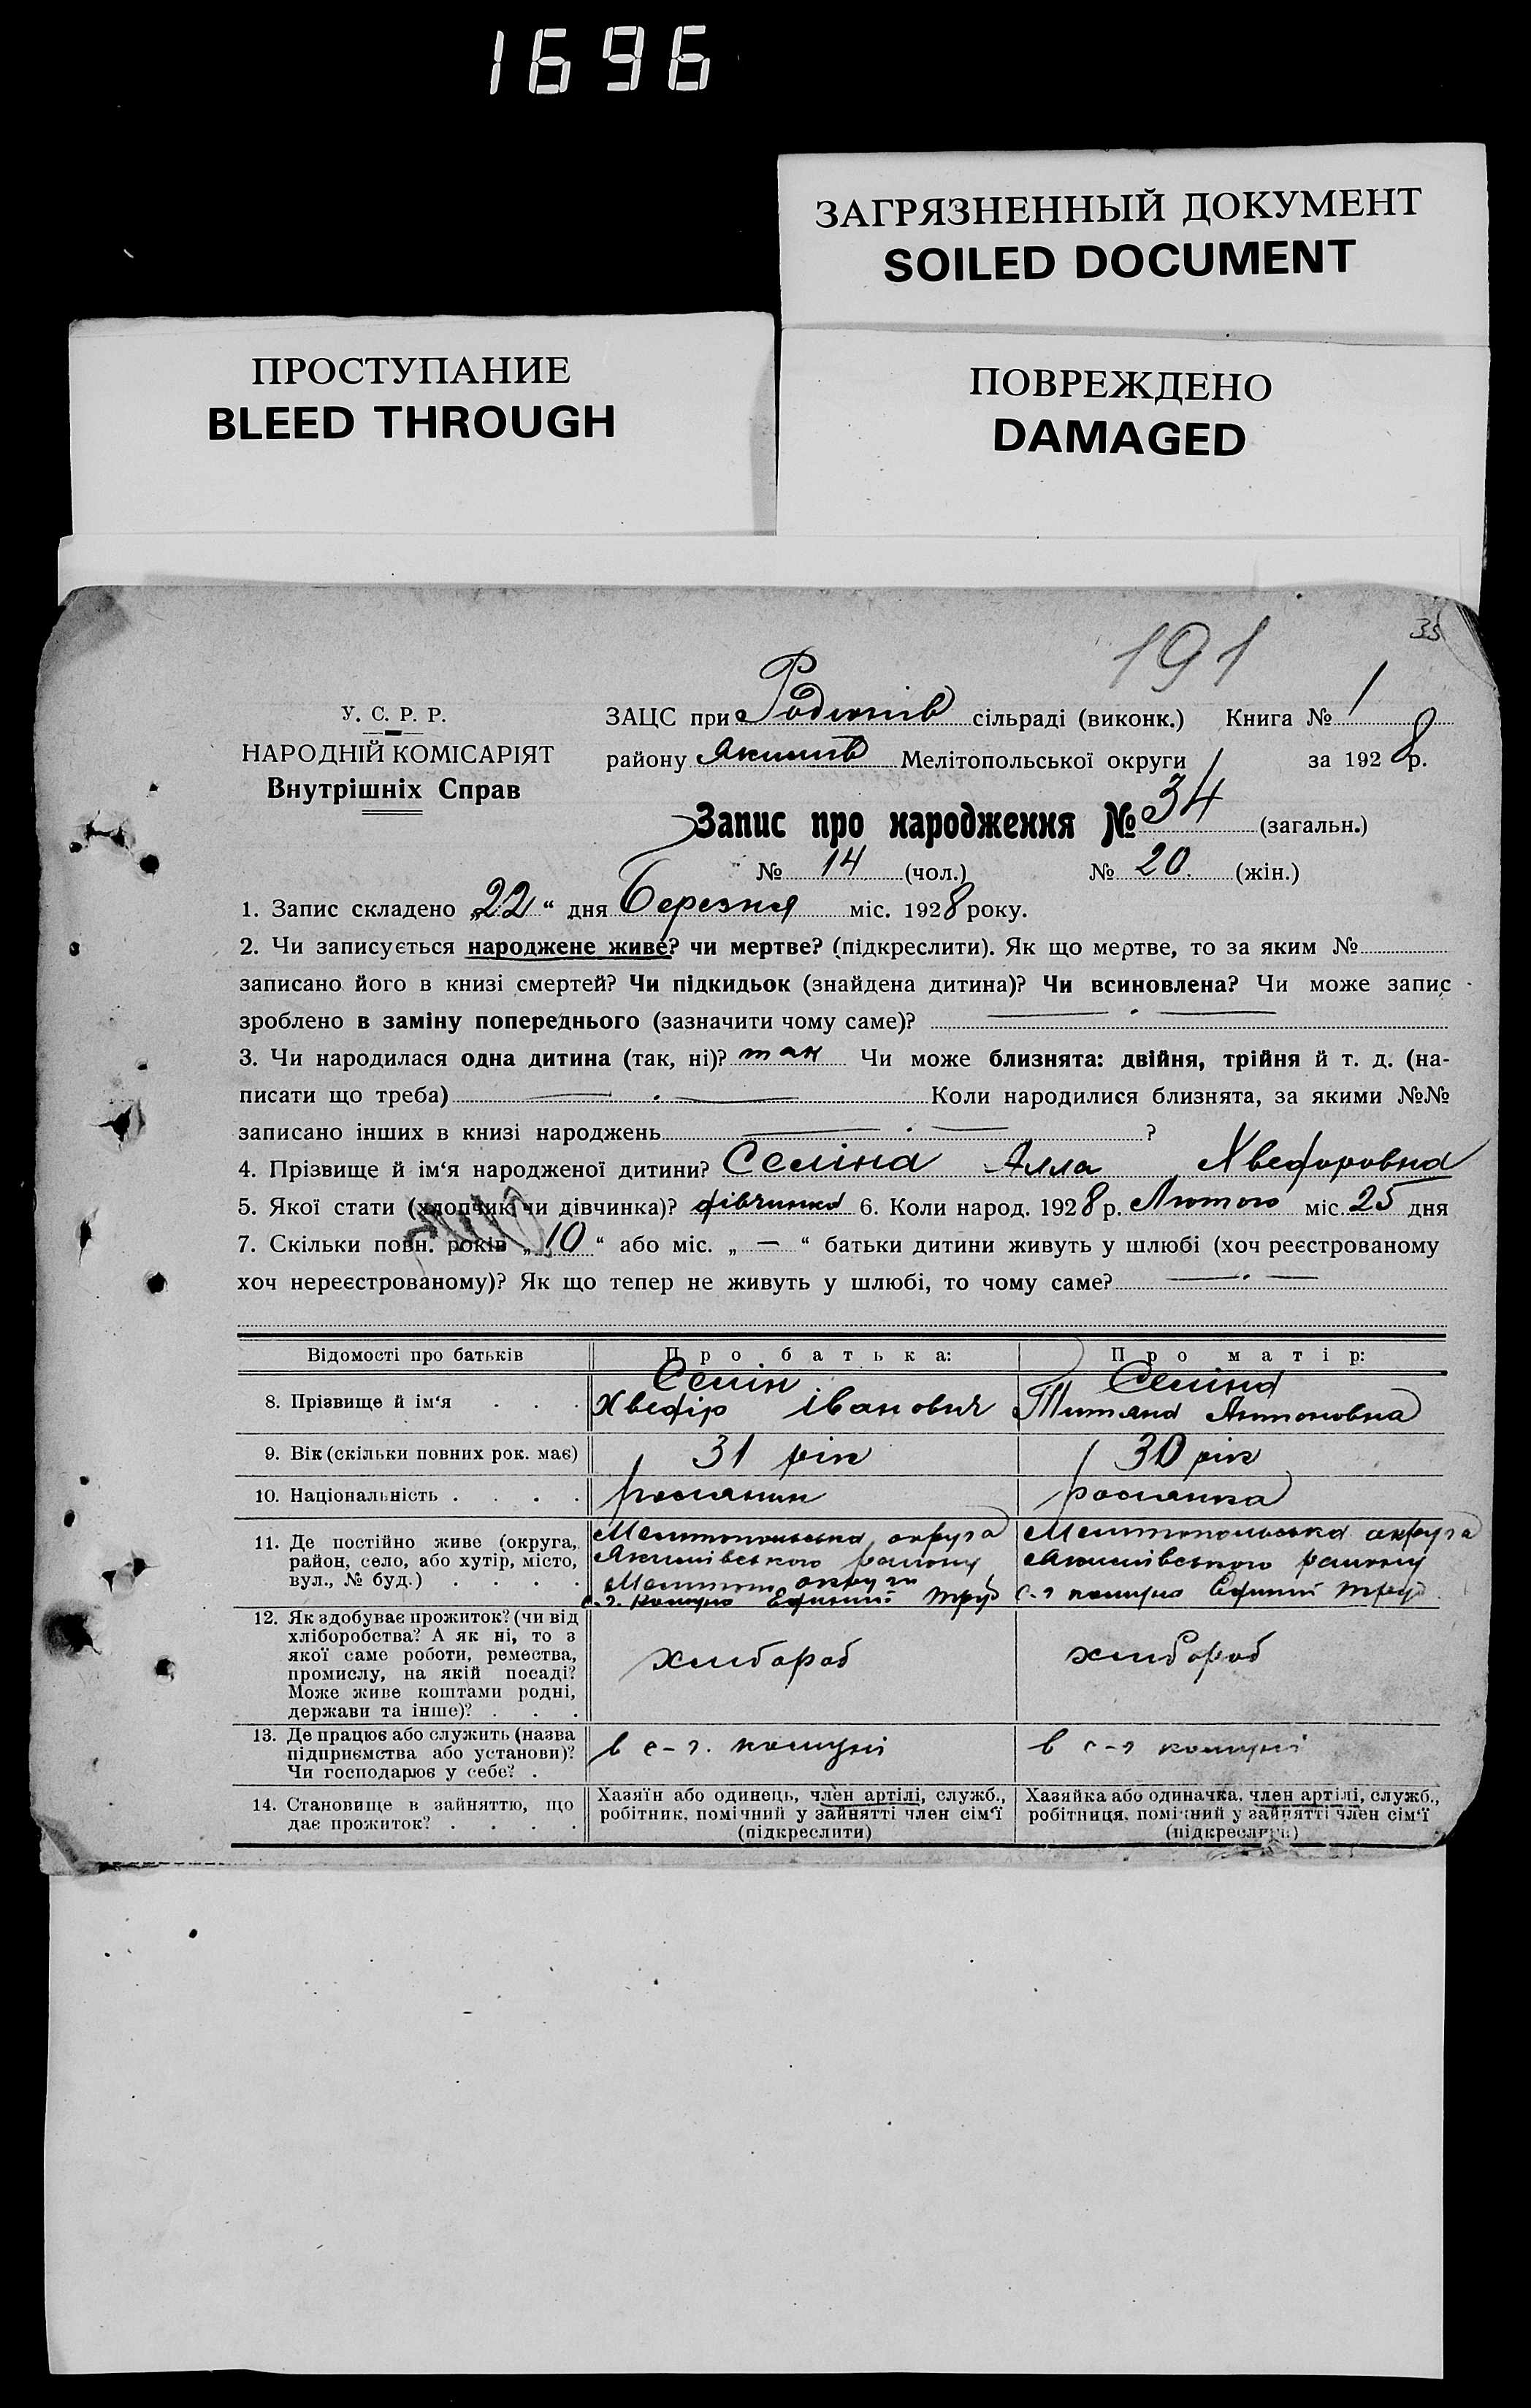 1696
ЗАГРЯЗНЕННЫЙ ДОКУМЕНТ
SOILED DOCUMENT
ПРОСТУПАНИЕ
BLEED THROUGH
ПОВРЕЖДЕНО
DAMAGED
35
191
У. С. Р. Р.
НАРОДНІЙ КОМІСАРІЯТ
Внутрішніх Справ
ЗАЦС при Родионів сільраді (виконк.) Книга № 1
району Якимів Мелітопольської округи за 1928 р.
Запис про народження № 34 (загальн.)
№ 14 (чол.) № 20 (жін.)
1. Запис складено „22“ дня Березня міс. 1928 року.
2. Чи записується народжене живе? чи мертве? (підкреслити). Як що мертве, то за яким №
записано його в книзі смертей? Чи підкидьок (знайдена дитина)? Чи всиновлена? Чи може запис
зроблено в заміну попереднього (зазначити чому саме)? — . —
3. Чи народилася одна дитина (так, ні)? так Чи може близнята: двійня, трійня й т. д. (на-
писати що треба) — . — Коли народилися близнята, за якими №№
записано інших в книзі народжень — . — ?
4. Прізвище й ім‘я народженої дитини? Селіна Алла Хведоровна
5. Якої стати (хлопчик чи дівчинка)? дівчинка 6. Коли народ. 1928 р. Лютого міс. 25 дня
7. Скільки повн. років „10“ або міс. „—“ батьки дитини живуть у шлюбі (хоч реєстрованому
хоч нереєстрованому)? Як що тепер не живуть у шлюбі, то чому саме? — . —
Відомості про батьків Про батька: Про матір:
8. Прізвище й ім‘я . . . Селін Хведір Іванович Селіна Титяна Антоновна
9. Вік (скільки повних рок. має) 31 рік 30 рік
10. Національність . . . . росіянин росіянка
11. Де постійно живе (округа, район, село, або хутір, місто, вул., № буд.) . . . .
Мелитопольська округа Мелитопольська округа
Якимівського району Якимівського району
Мелитоп округи
с.г. комуна Єдиний труд с-г комуна Єдиний труд
12. Як здобуває прожиток? (чи від
хліборобства? А як ні, то з
якої саме роботи, ремества,
промислу, на якій посаді?
Може живе коштами родні,
держави та інше)? . . .
хлібороб хлібороб
13. Де працює або служить (назва
підприємства або установи)?
Чи господарює у себе? .
в с-г. комуні в с-г комуні
14. Становище в зайняттю, що
дає прожиток? . . . .
Хазяїн або одинець, член артілі, служб.,
робітник, помічний у зайнятті член сім‘ї
(підкреслити)
Хазяйка або одиначка, член артілі, служб.,
робітниця, помічний у зайнятті член сім‘ї
(підкреслити)